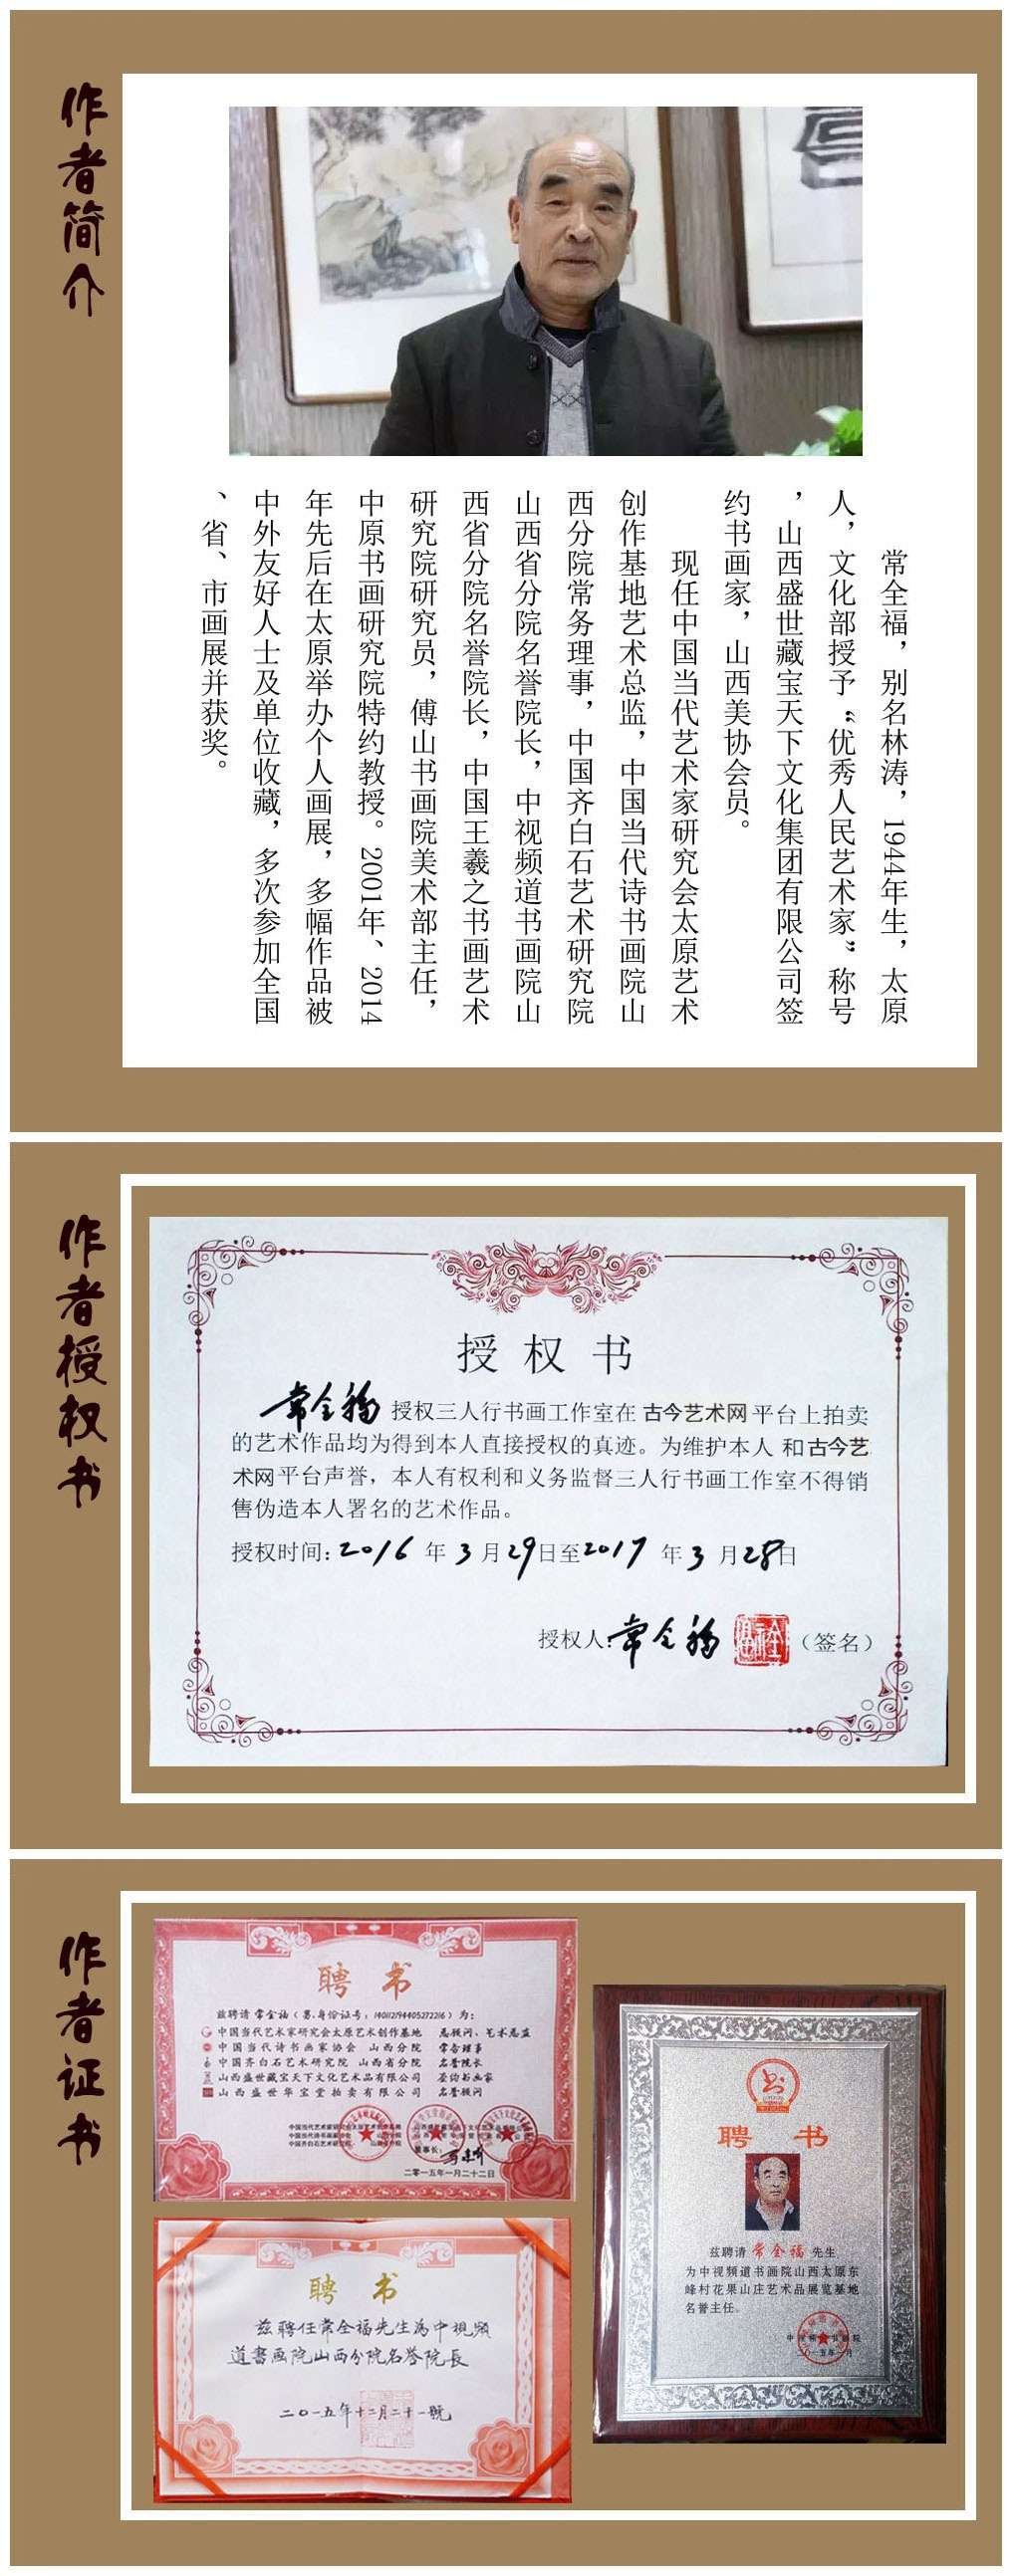 作者简介
常全福，别名林涛，1944年生，太原
人，文化部授予“优秀人民艺术家”称号
，山西盛世藏宝天下文化集团有限公司签
约书画家，山西美协会员。
现任中国当代艺术家研究会太原艺术
创作基地艺术总监，中国当代诗书画院山
西分院常务理事，中国齐白石艺术研究院
山西省分院名誉院长，中视频道书画院山
西省分院名誉院长，中国王羲之书画艺术
研究院研究员，傅山书画院美术部主任，
中原书画研究院特约教授。2001年、2014
年先后在太原举办个人画展，多幅作品被
中外友好人士及单位收藏，多次参加全国
、省、市画展并获奖。
作者授权书
授权书
常全福 授权三人行书画工作室在 古今艺术网 平台上拍卖
的艺术作品均为得到本人直接授权的真迹。为维护本人 和古今艺
术网平台声誉，本人有权利和义务监督三人行书画工作室不得销
售伪造本人署名的艺术作品。
授权时间: 2016 年 3 月 29日至2017 年 3 月 28日
授权人: 常全福 （签名）
作者证书
聘 书
兹聘请 常全福（男,身份证号：140112194405272216）为：
中国当代艺术家研究会太原艺术创作基地 总顾问、艺术总监
中国当代诗书画家协会 山西分院 常务理事
中国齐白石艺术研究院 山西省分院 名誉院长
山西盛世藏宝天下文化艺术品有限公司 签约书画家
山西盛世华宝堂拍卖有限公司 名誉顾问
董事长：
二零一五年一月二十二日
聘 书
兹聘任常全福先生為中視頻
道書画院山西分院名誉院長
二〇一五年十二月二十一號
聘 书
兹聘请 常全福 先生
为中视频道书画院山西太原东
峰村花果山庄艺术品展览基地
名誉主任。